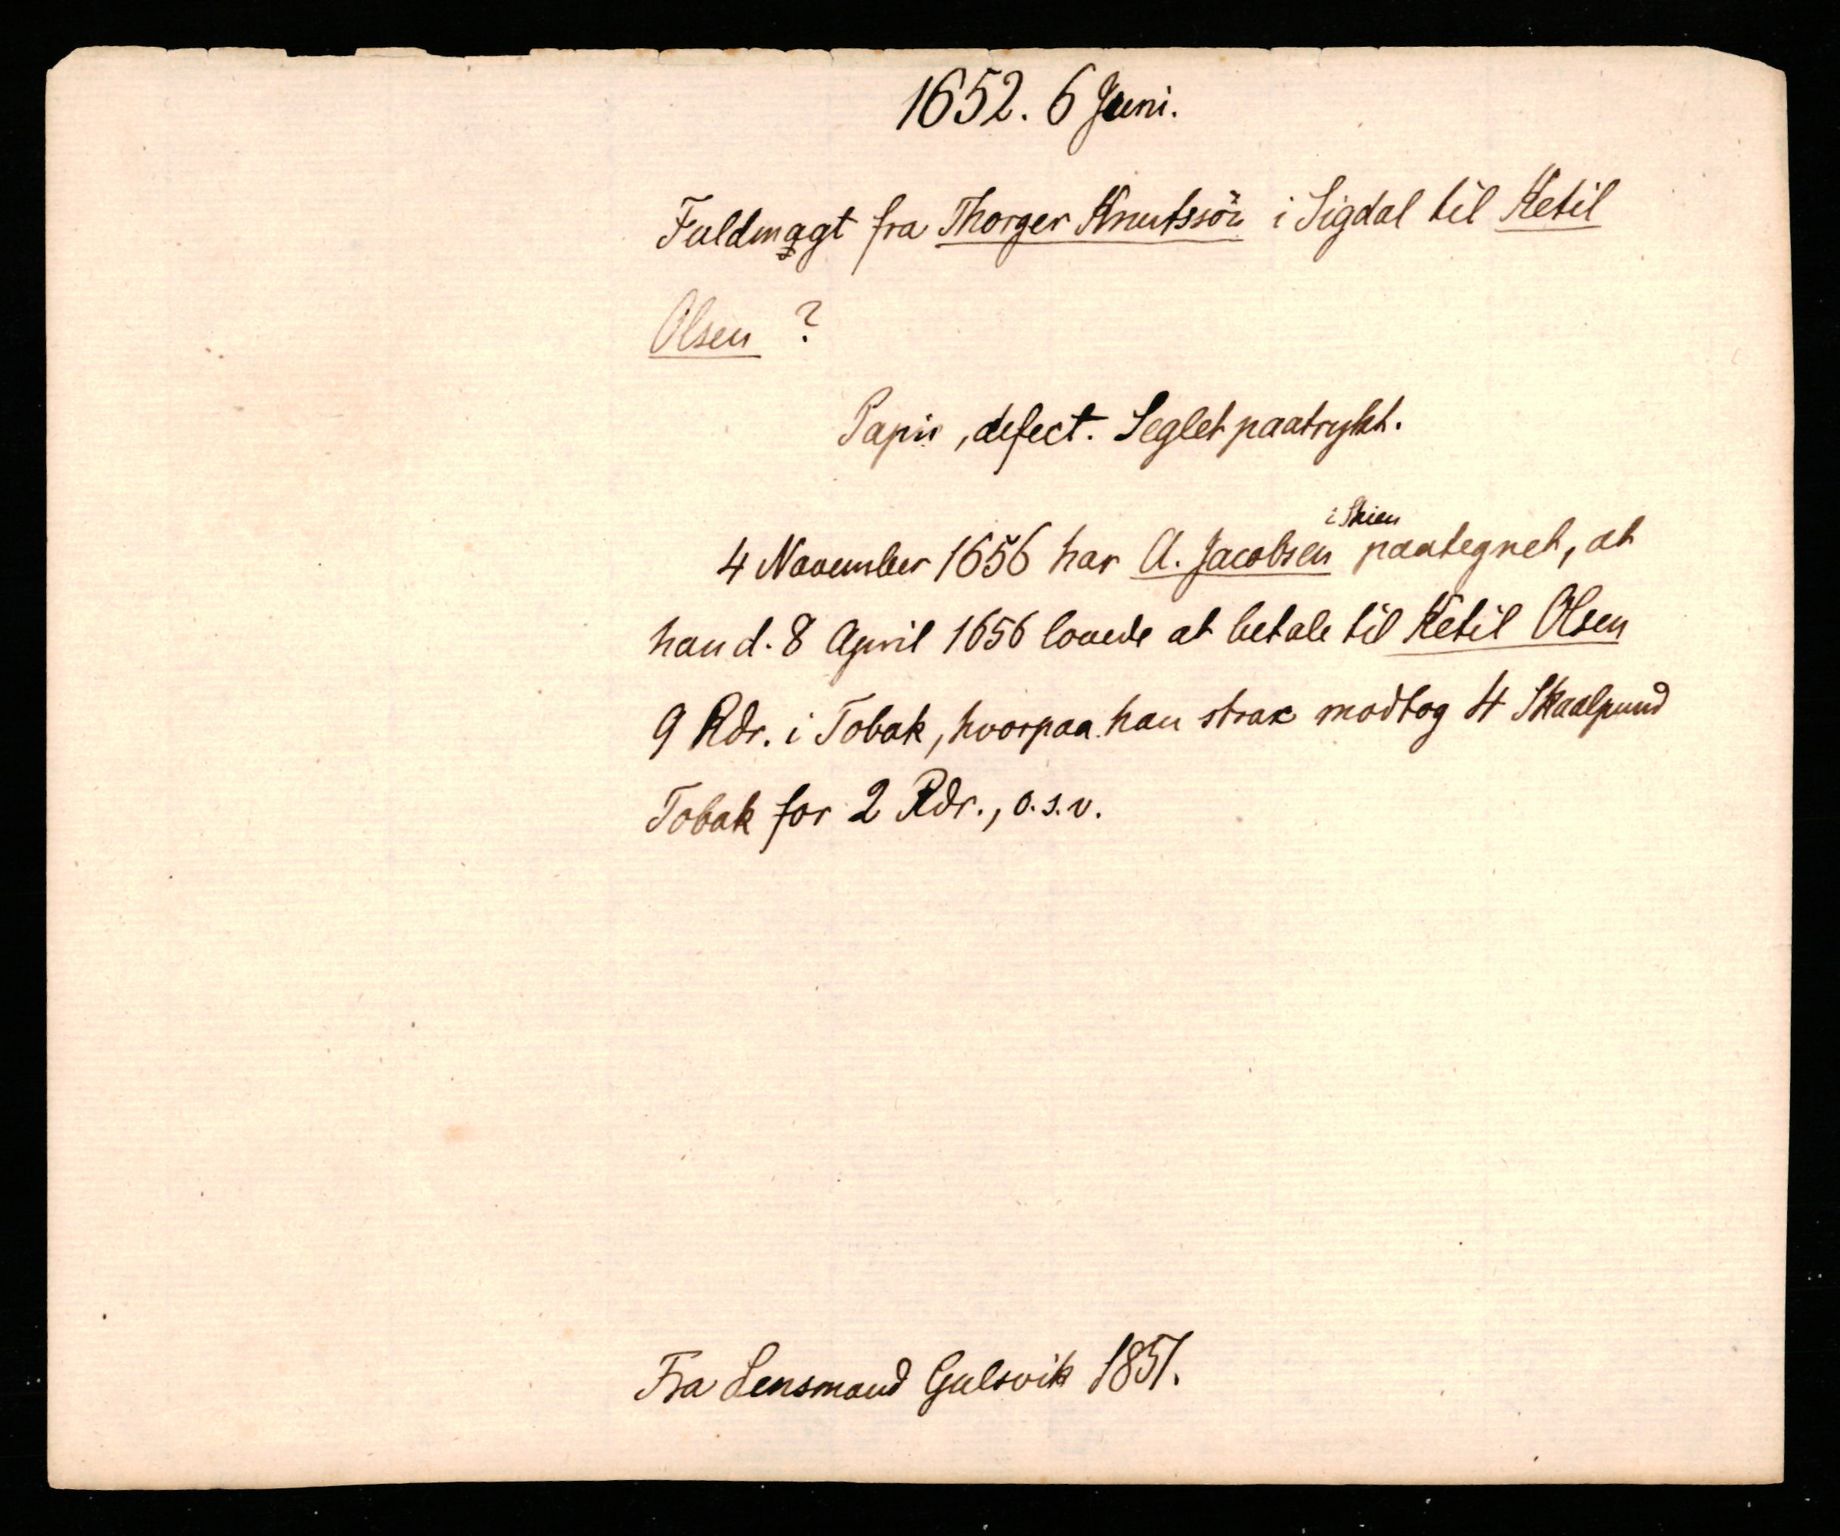 1652. 6 Juni.
Fuldmagt fra Thorger Knutssön i Sigdal til Ketil
Olsen ?
Papir, defect. Seglet paatrykt.
i Skien
4 November 1656 har A. Jacobsen paategnet, at
han d. 8 April 1656 lovede at betale til Ketil Olsen
9 Rdr. i Tobak, hvorpaa han strax modtog 4 Skaalpund
Tobak for 2 Rdr., o.s.v.
Fra Lensmand Gulsvik 1851.